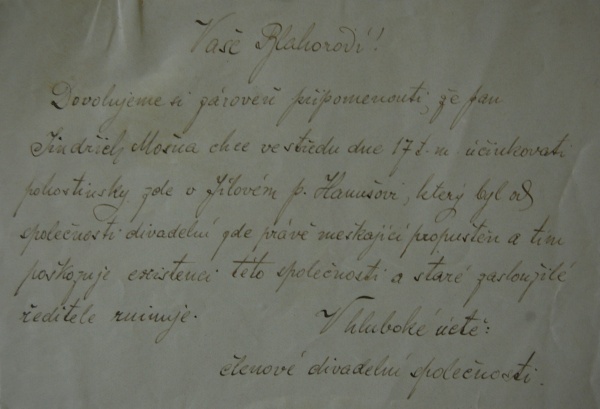 Vaše Blahorodí!
Dovolujeme si zároveň připomenouti, že pan
Jindřich Mošna chce ve středu dne 17 t. m. účinkovati
pohostinsky zde v Jílovém p. Hanušovi, který byl od
společnosti divadelní zde právě meškající propuštěn a tím
poškozuje existenci této společnosti a staré zasloužilé
ředitele ruinuje.
V hluboké úctě:
členové divadelní společnosti.